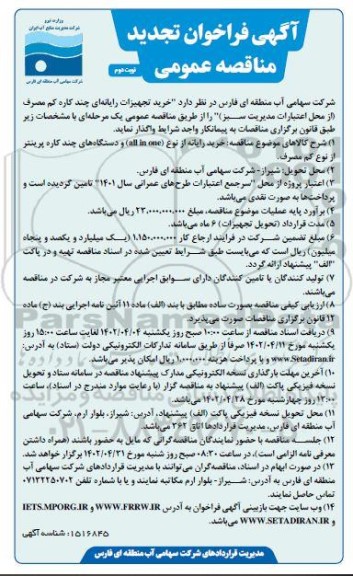 وزارت نیرو
شرکت مدیریت منابع آب ایران
شرکت سهامی آب منطقه ای فارس
آگهی فراخوان تجدید
مناقصه عمومی
نوبت دوم
شرکت سهامی آب منطقه ای فارس در نظر دارد "خرید تجهیزات رایانه‌ای چند کاره کم مصرف
(از محل اعتبارات مدیریت سبز)" را از طریق مناقصه عمومی یک مرحله‌ای با مشخصات زیر
طبق قانون برگزاری مناقصات به پیمانکار واجد شرایط واگذار نماید.
۱) شرح کالاهای موضوع مناقصه: خرید رایانه از نوع (all in one) و دستگاه‌های چند کاره پرینتر
از نوع کم مصرف.
۲) محل تحویل: شیراز - شرکت سهامی آب منطقه ای فارس.
۳) اعتبار پروژه از محل "سرجمع اعتبارات طرح‌های عمرانی سال ۱۴۰۱" تامین گردیده است و
پرداخت‌ها به صورت نقدی می‌باشد.
۴) برآورد پایه عملیات موضوع مناقصه، مبلغ ۲۳.۰۰۰.۰۰۰.۰۰۰ ریال می‌باشد.
۵) مدت قرارداد (تحویل تجهیزات) ۶ ماه می‌باشد.
۶) مبلغ تضمین شرکت در فرآیند ارجاع کار ۱.۱۵۰.۰۰۰.۰۰۰ (یک میلیارد و یکصد و پنجاه
میلیون) ریال است که می‌بایست طبق شرایط تعیین شده در اسناد مناقصه تهیه و در پاکت
"الف" پیشنهاد ارائه گردد.
۷) تولید کنندگان یا تامین کنندگان دارای سوابق اجرایی معتبر مجاز به شرکت در مناقصه
می‌باشند.
۸) ارزیابی کیفی مناقصه بصورت ساده مطابق با بند (الف) ماده ۱۱ آئین نامه اجرایی بند (ج) ماده
۱۲ قانون برگزاری مناقصات صورت می‌پذیرد.
۹) دریافت اسناد مناقصه از ساعت ۱۰:۰۰ صبح روز یکشنبه ۱۴۰۲/۰۴/۰۴ لغایت ساعت ۱۵:۰۰ روز
یکشنبه مورخ ۱۴۰۲/۰۴/۱۱ صرفا از طریق سامانه تدارکات الکترونیکی دولت (ستاد) به آدرس:
www.Setadiran.ir و با پرداخت هزینه ۱.۰۰۰.۰۰۰ ریال امکان پذیر می‌باشد.
۱۰) آخرین مهلت بارگذاری نسخه الکترونیکی مدارک پیشنهاد مناقصه در سامانه ستاد و تحویل
نسخه فیزیکی پاکت (الف) پیشنهاد به مناقصه گزار (با رعایت موارد مندرج در اسناد)، ساعت
۱۳:۰۰ روز چهارشنبه مورخ ۱۴۰۲/۰۴/۲۸ می‌باشد.
۱۱) محل تحویل نسخه فیزیکی پاکت (الف) پیشنهاد، آدرس: شیراز، بلوار ارم، شرکت سهامی
آب منطقه ای فارس، مدیریت قراردادها اتاق ۳۶۲ می‌باشد.
۱۲) جلسه مناقصه با حضور نمایندگان مناقصه‌گرانی که مایل به حضور باشند (همراه داشتن
معرفی نامه الزامی است)، در ساعت ۰۸:۳۰ صبح روز شنبه مورخ ۱۴۰۲/۰۴/۳۱ برگزار خواهد شد.
۱۳) در صورت ابهام در اسناد، مناقصه‌گران می‌توانند با مدیریت قراردادهای شرکت سهامی آب
منطقه ای فارس به آدرس: شیراز - بلوار ارم مکاتبه نمایند و یا با شماره تلفن ۰۷۱۳۲۲۵۰۷۰۲
تماس حاصل نمایند.
۱۴) وب سایت جهت بازبینی آگهی فراخوان به آدرس WWW.FRRW.IR و IETS.MPORG.IR
و WWW.SETADIRAN.IR می‌باشد.
شناسه آگهی: ۱۵۱۶۸۴۵
مدیریت قراردادهای شرکت سهامی آب منطقه ای فارس